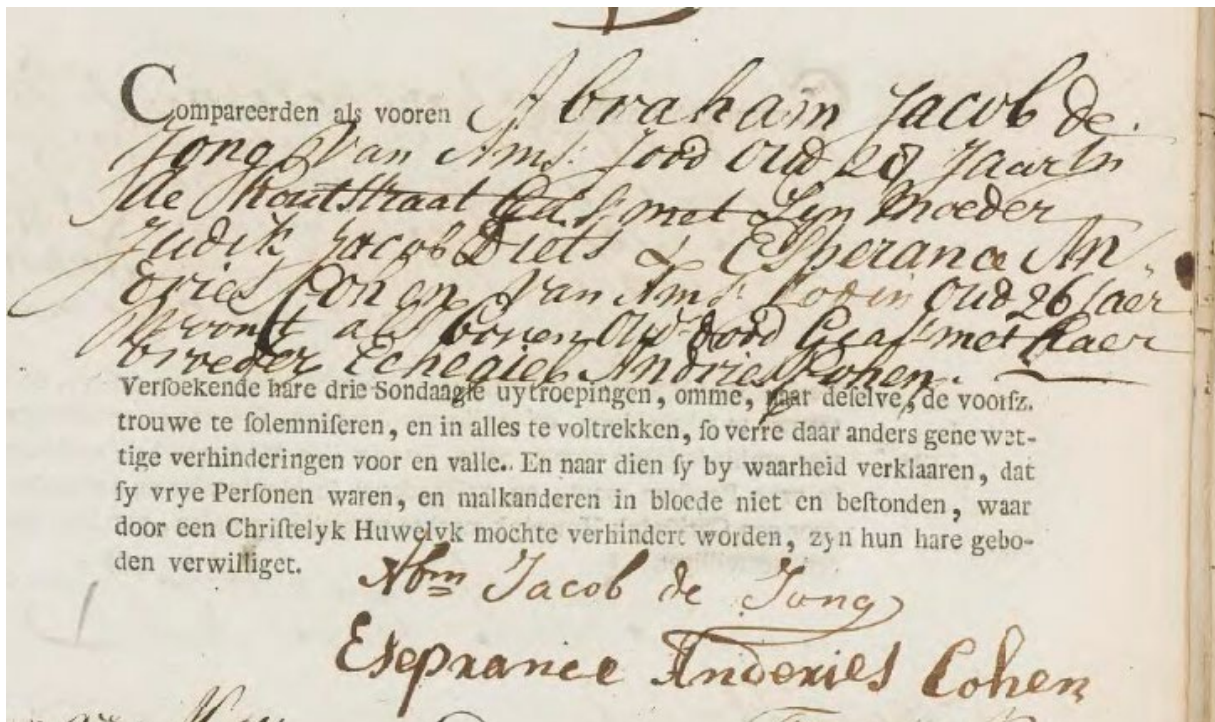 Compareerden als vooren Abraham Jacob de
Jong Van Ams: Jood Oud 28 Jaar In
de Houtstraat Geas: met Zyn Moeder
Judik Jacob Diets & Esperance An
dries Cohen Van Ams: Jodin Oud 26 Jaer
Woont als boven Ou: dood Geas: met Haer
broeder Echegiel Andries Cohen.
Versoekende hare drie Sondaagse uytroepingen, omme, naar deselve, de voorsz.
trouwe te solemniseren, en in alles te voltrekken, so verre daar anders gene wet-
tige verhinderingen voor en valle. En naar dien sy by waarheid verklaaren, dat
sy vrye Personen waren, en malkanderen in bloede niet en bestonden, waar
door een Christelyk Huwelyk mochte verhindert worden, zyn hun hare gebo-
den verwilliget.
Abm Jacob de Jong
Esepranee Anderies Cohen